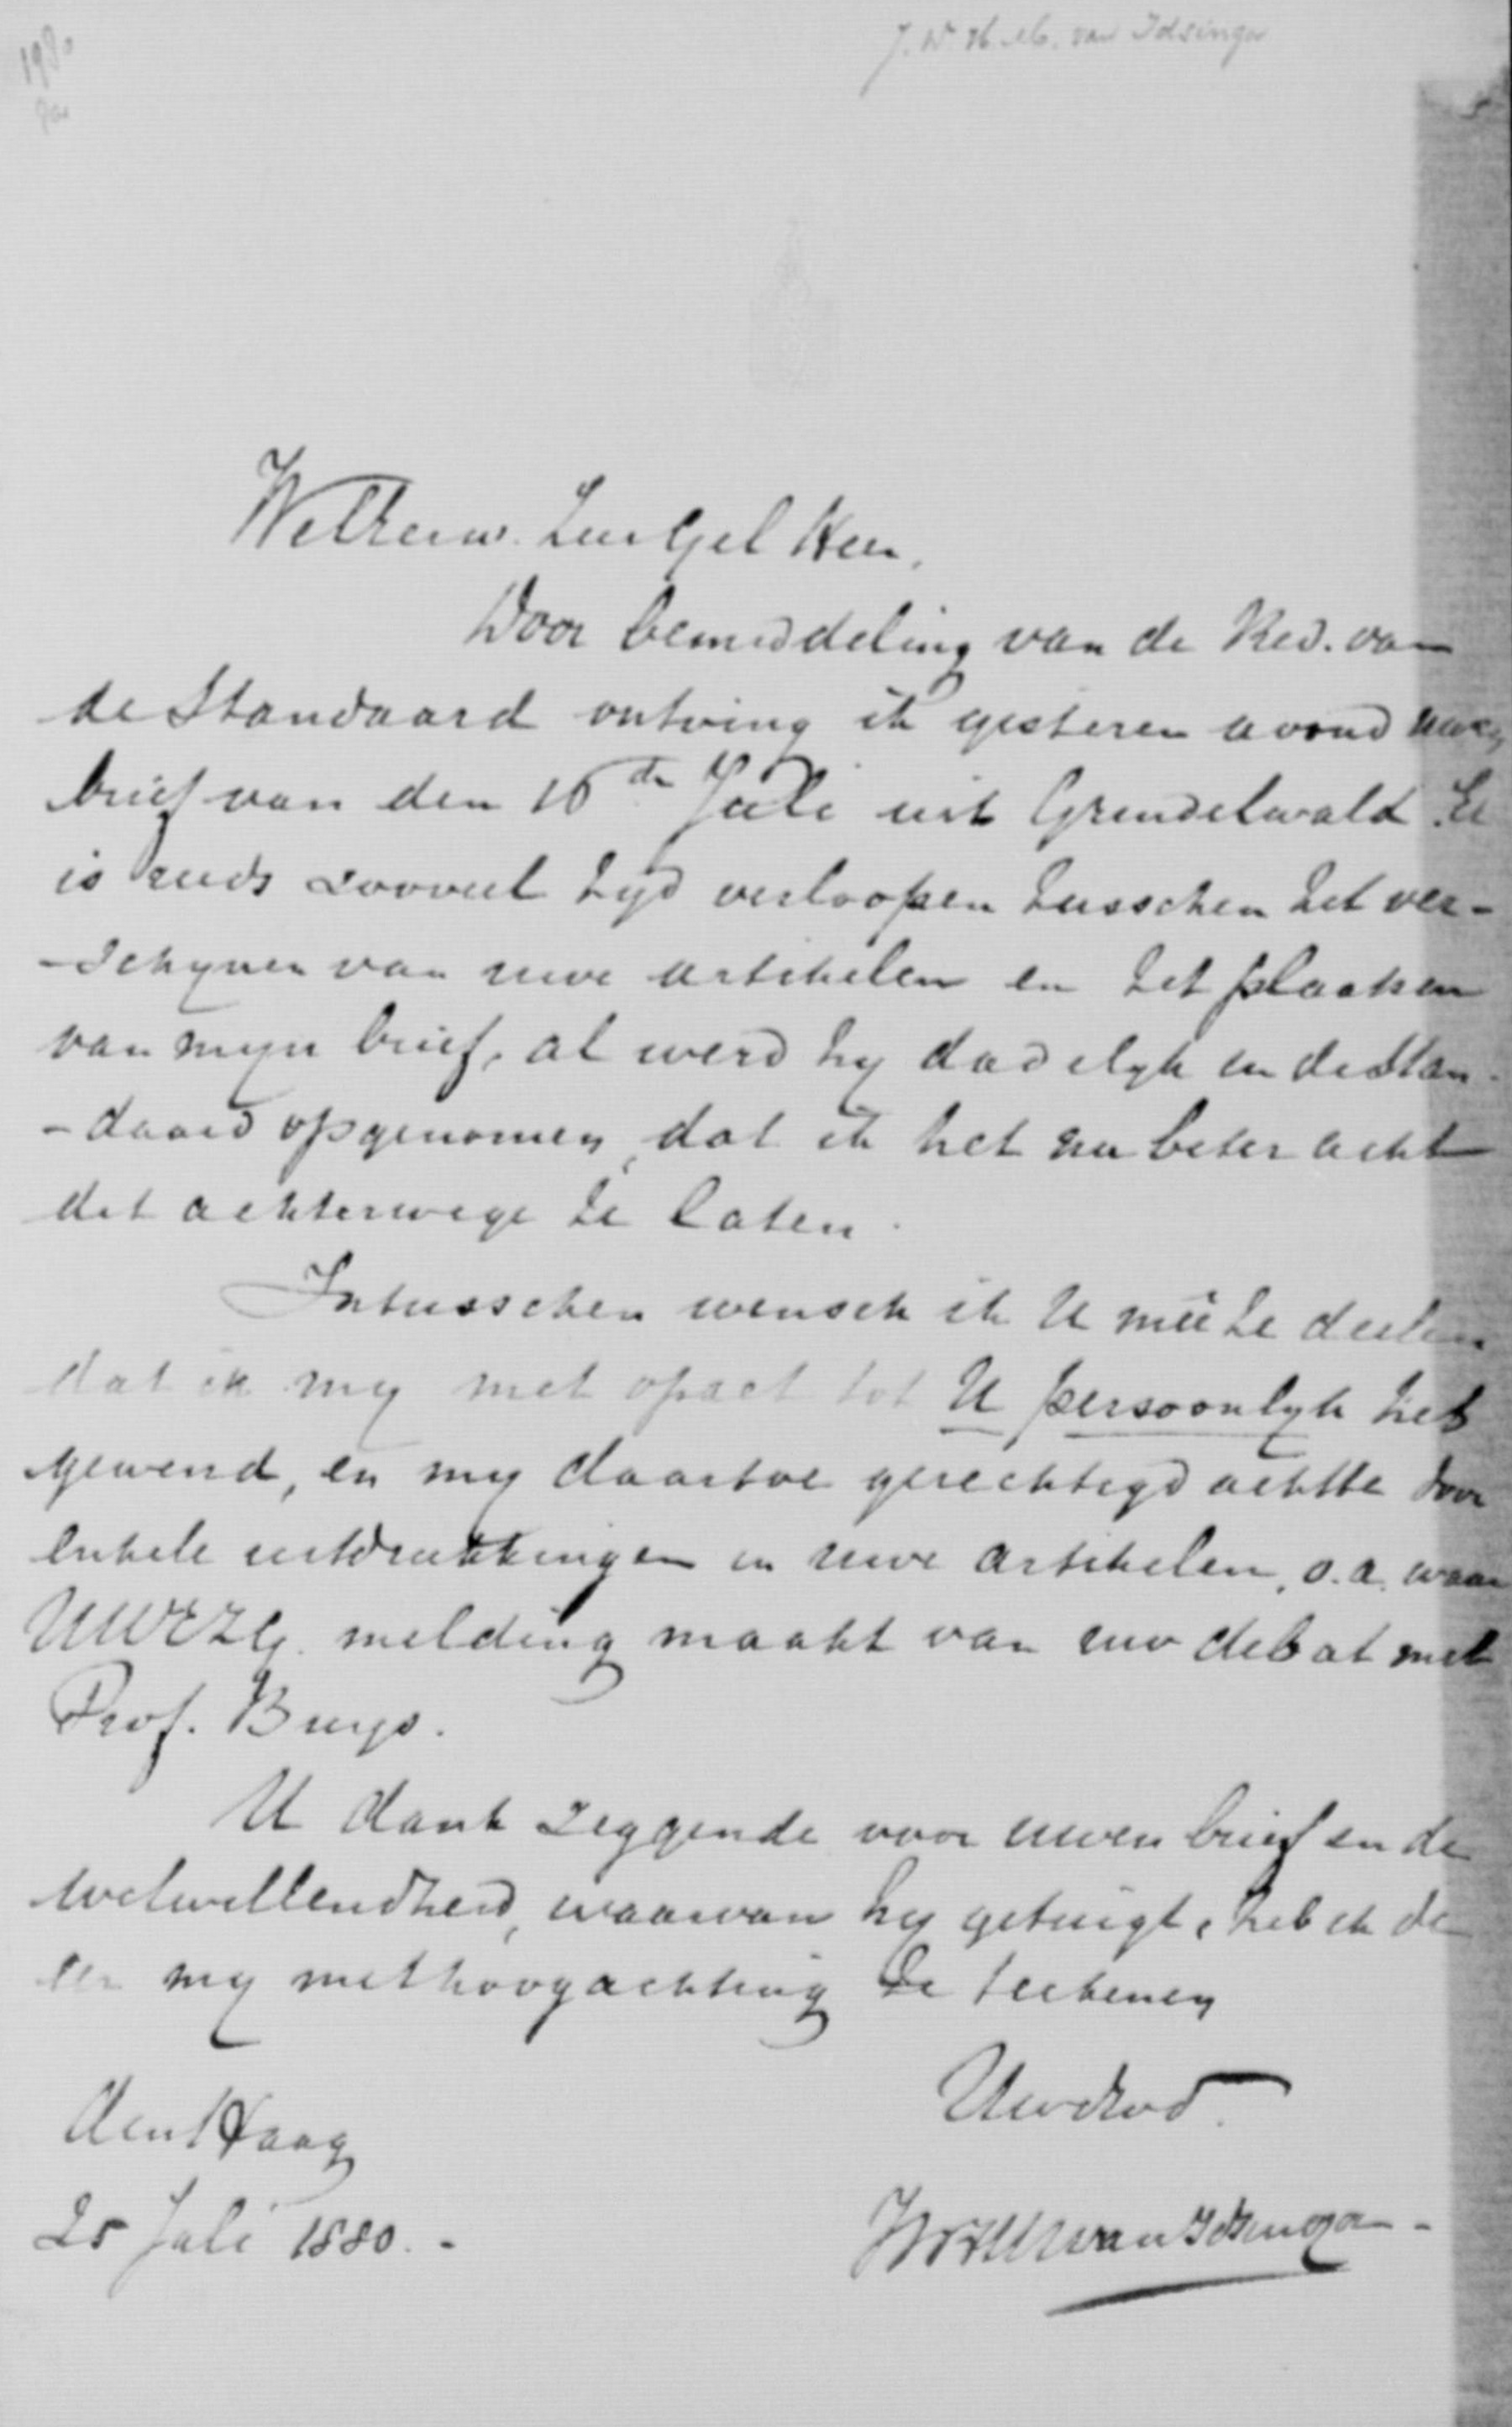 J. W. H. M. van Idsinga
WelEerw. Zeer Gel Heer,
Door bemiddeling van de Red. van
de Standaard ontving ik gisteren avond uwen
brief van den 16de Juli uit Grindelwald. Er
is reeds zooveel tyd verloopen tusschen het ver-
-schynen van uwe artikelen en het plaatsen
van myn brief, al werd hy dadelyk in de Stan-
-daard opgenomen, dat ik het nu beter acht
dit achterwege te laten.
Intusschen wensch ik U meê te deelen
dat ik my met opzet tot U persoonlyk heb
gewend, en my daartoe gerechtigd achtte door
enkele uitdrukkingen in uwe artikelen, o.a. waar
UWEZG. melding maakt van uw debat met
Prof. Buys.
U dank zeggende voor uwen brief en de
welwillendheid, waarvan hy getuigt, heb ik de
eer my met hoogachting te teekenen
UwEDw
den Haag
25 Juli 1880. -
JWHM van Idsinga -